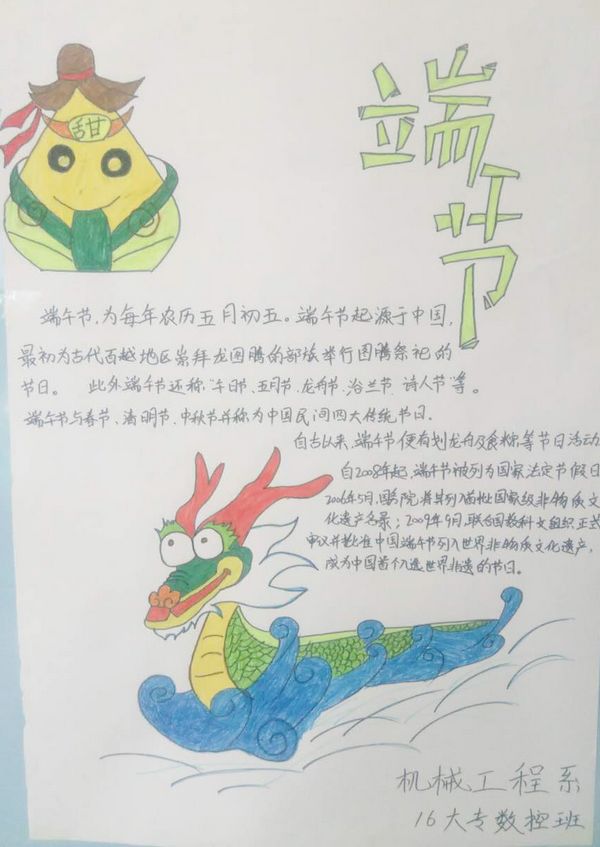 甜
端午节
端午节,为每年农历五月初五。端午节起源于中国,
最初为古代百越地区崇拜龙图腾的部族举行图腾祭祀的
节日。 此外端午节还称:午日节、五月节、龙舟节、浴兰节、诗人节等。
端午节与春节、清明节、中秋节并称为中国民间四大传统节日.
自古以来,端午节便有划龙舟及食粽等节日活动
自2008年起,端午节被列为国家法定节假日
2006年5月,国务院将其列入首批国家级非物质文
化遗产名录;2009年9月,联合国教科文组织正式
审议并批准中国端午节列入世界非物质文化遗产,
成为中国首个入选世界非遗的节日。
机械工程系
16大专数控班